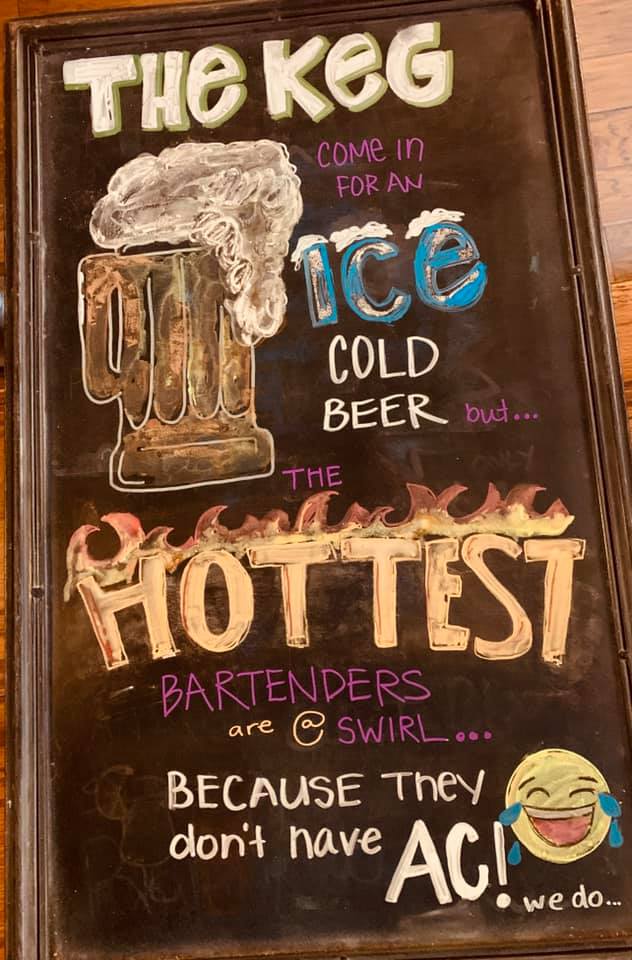 THE KEG
COME IN
FOR AN
ICE
COLD
BEER but...
THE
HOTTEST
BARTENDERS
are @ SWIRL...
BECAUSE They
don't have AC!
we do...